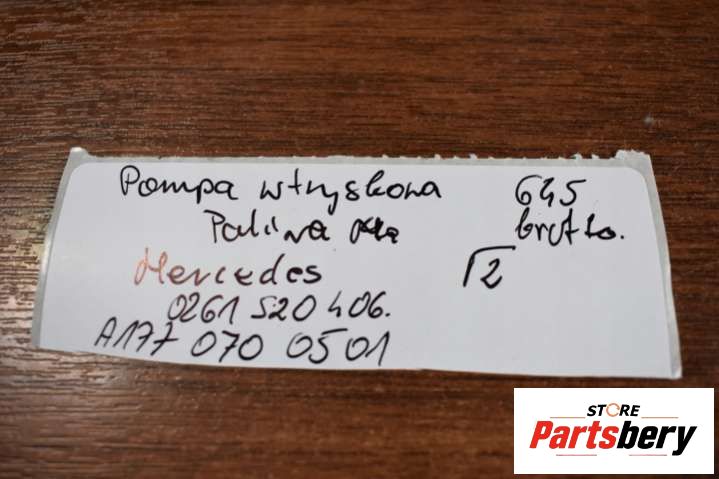 Pompa wtryskowa 645
Paliwa brutto.
Mercedes Γ2
0261 520 406.
A177 070 0501
STORE
Partsbery